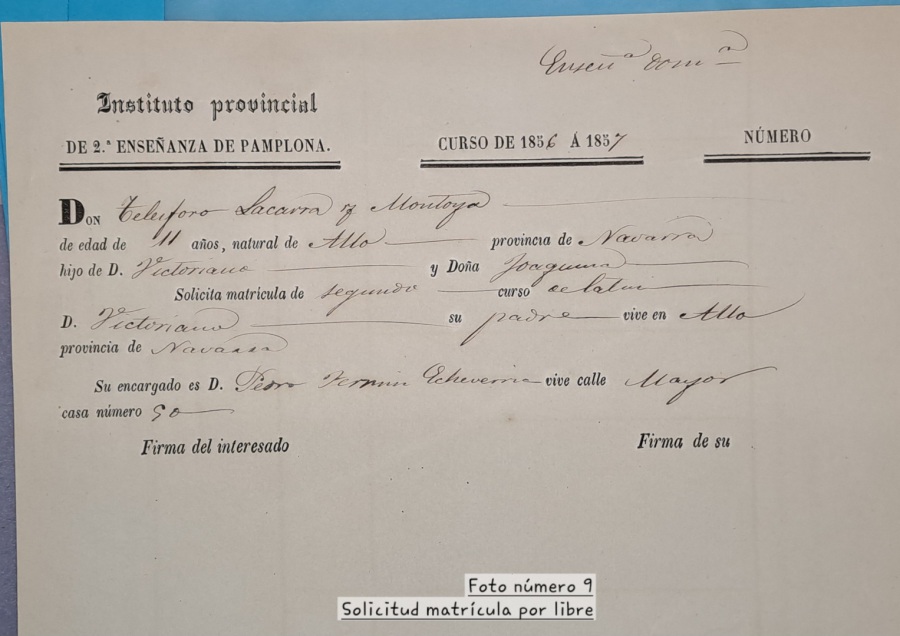 Enseñª domª
Instituto provincial
DE 2.ª ENSEÑANZA DE PAMPLONA.
CURSO DE 1856 Á 1857
NÚMERO
DON Telesforo Lacarra y Montoya
de edad de 11 años, natural de Allo provincia de Navarra
hijo de D. Victoriano y Doña Joaquina
Solicita matrícula de segundo curso de latin
D. Victoriano su padre vive en Allo
provincia de Navarra
Su encargado es D. Pedro Fermin Echeverria vive calle Mayor
casa número 90
Firma del interesado
Firma de su
Foto número 9
Solicitud matrícula por libre